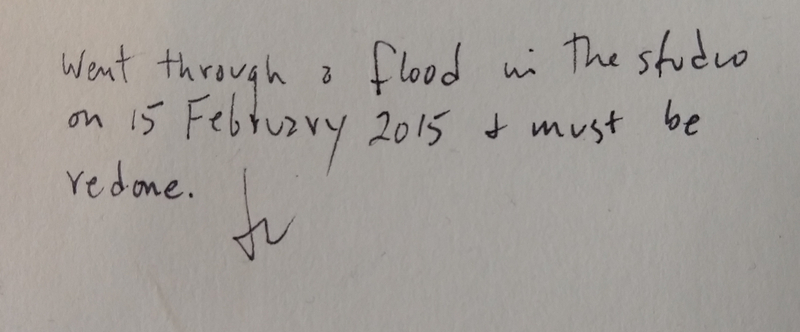 Went through a flood in the studio
on 15 February 2015 & must be
redone.